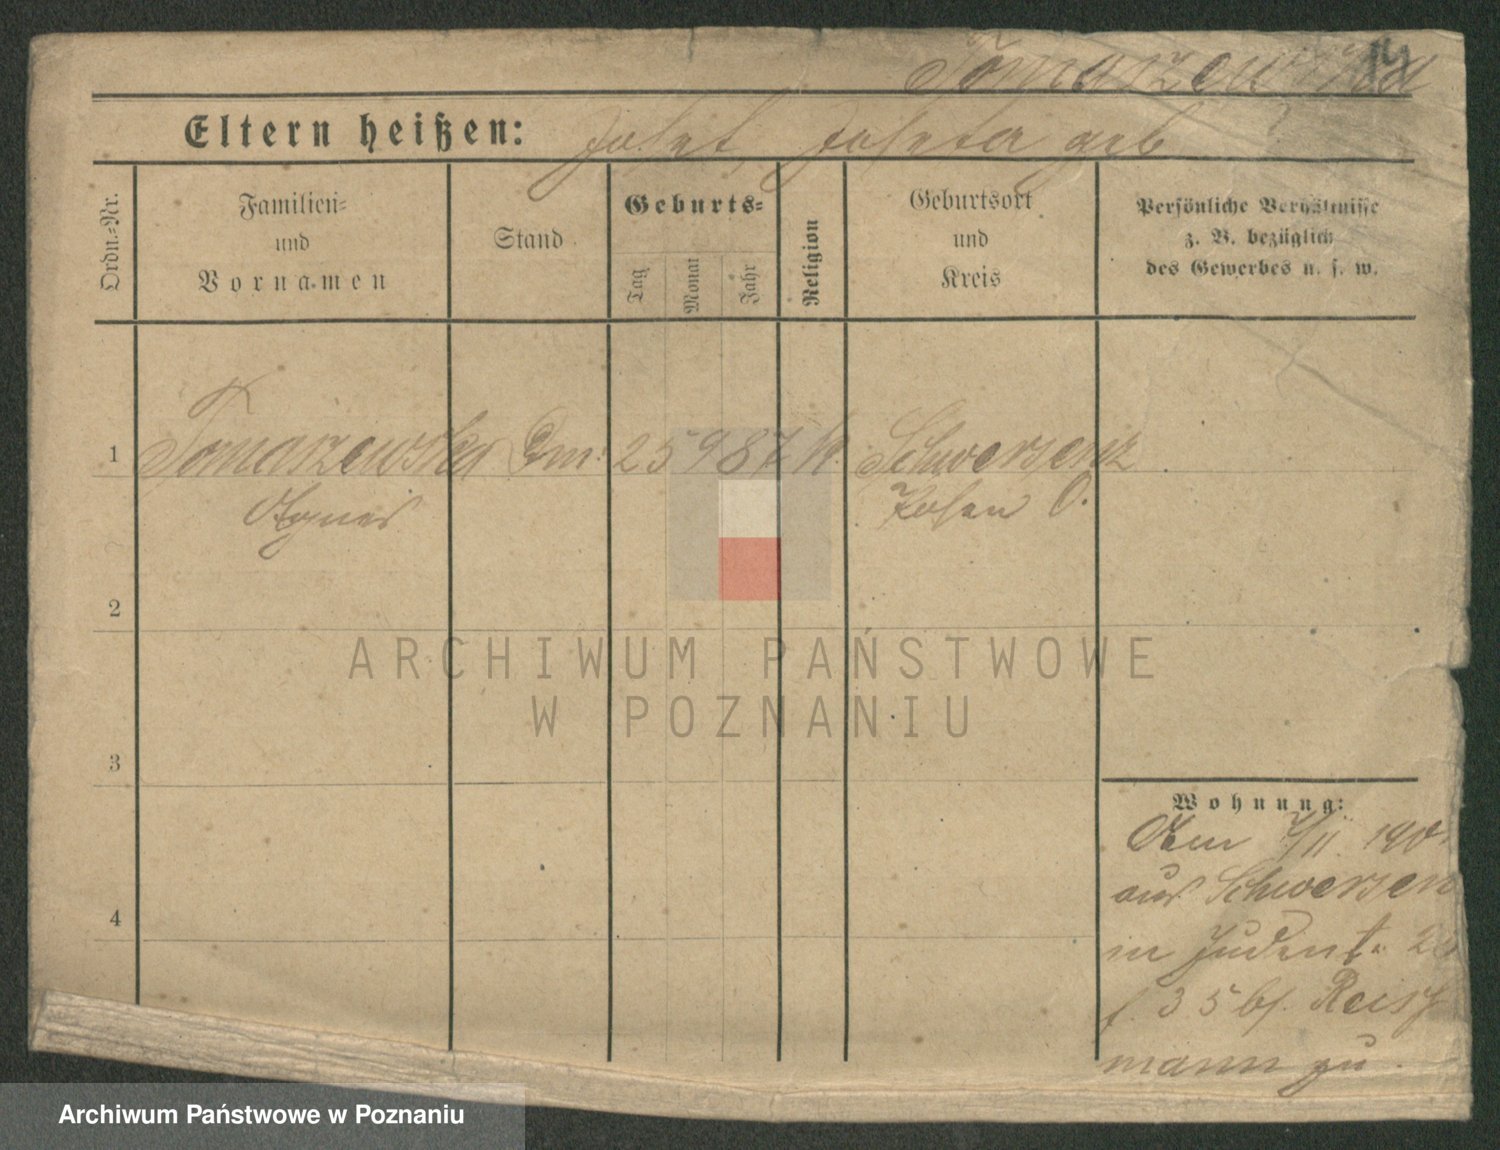 Tomaszewska
Eltern heißen: Josef, Josefa geb
Ordn.-Nr.
Familien-
und
Vornamen
Stand
Geburts-
Tag
Monat
Jahr
Religion
Geburtsort
und
Kreis
Persönliche Verhältnisse
z. B. bezüglich
des Gewerbes u. s. w.
1 Tomaszewska Dm: 25 9 87 k. Schwersenz
Agnes Posen O.
2
3
4
Wohnung:
Am 7/11 190
aus Schwersen
in Judenst. 2
f. 35 bf.
mann zu.
ARCHIWUM PAŃSTWOWE
W POZNANIU
Archiwum Państwowe w Poznaniu